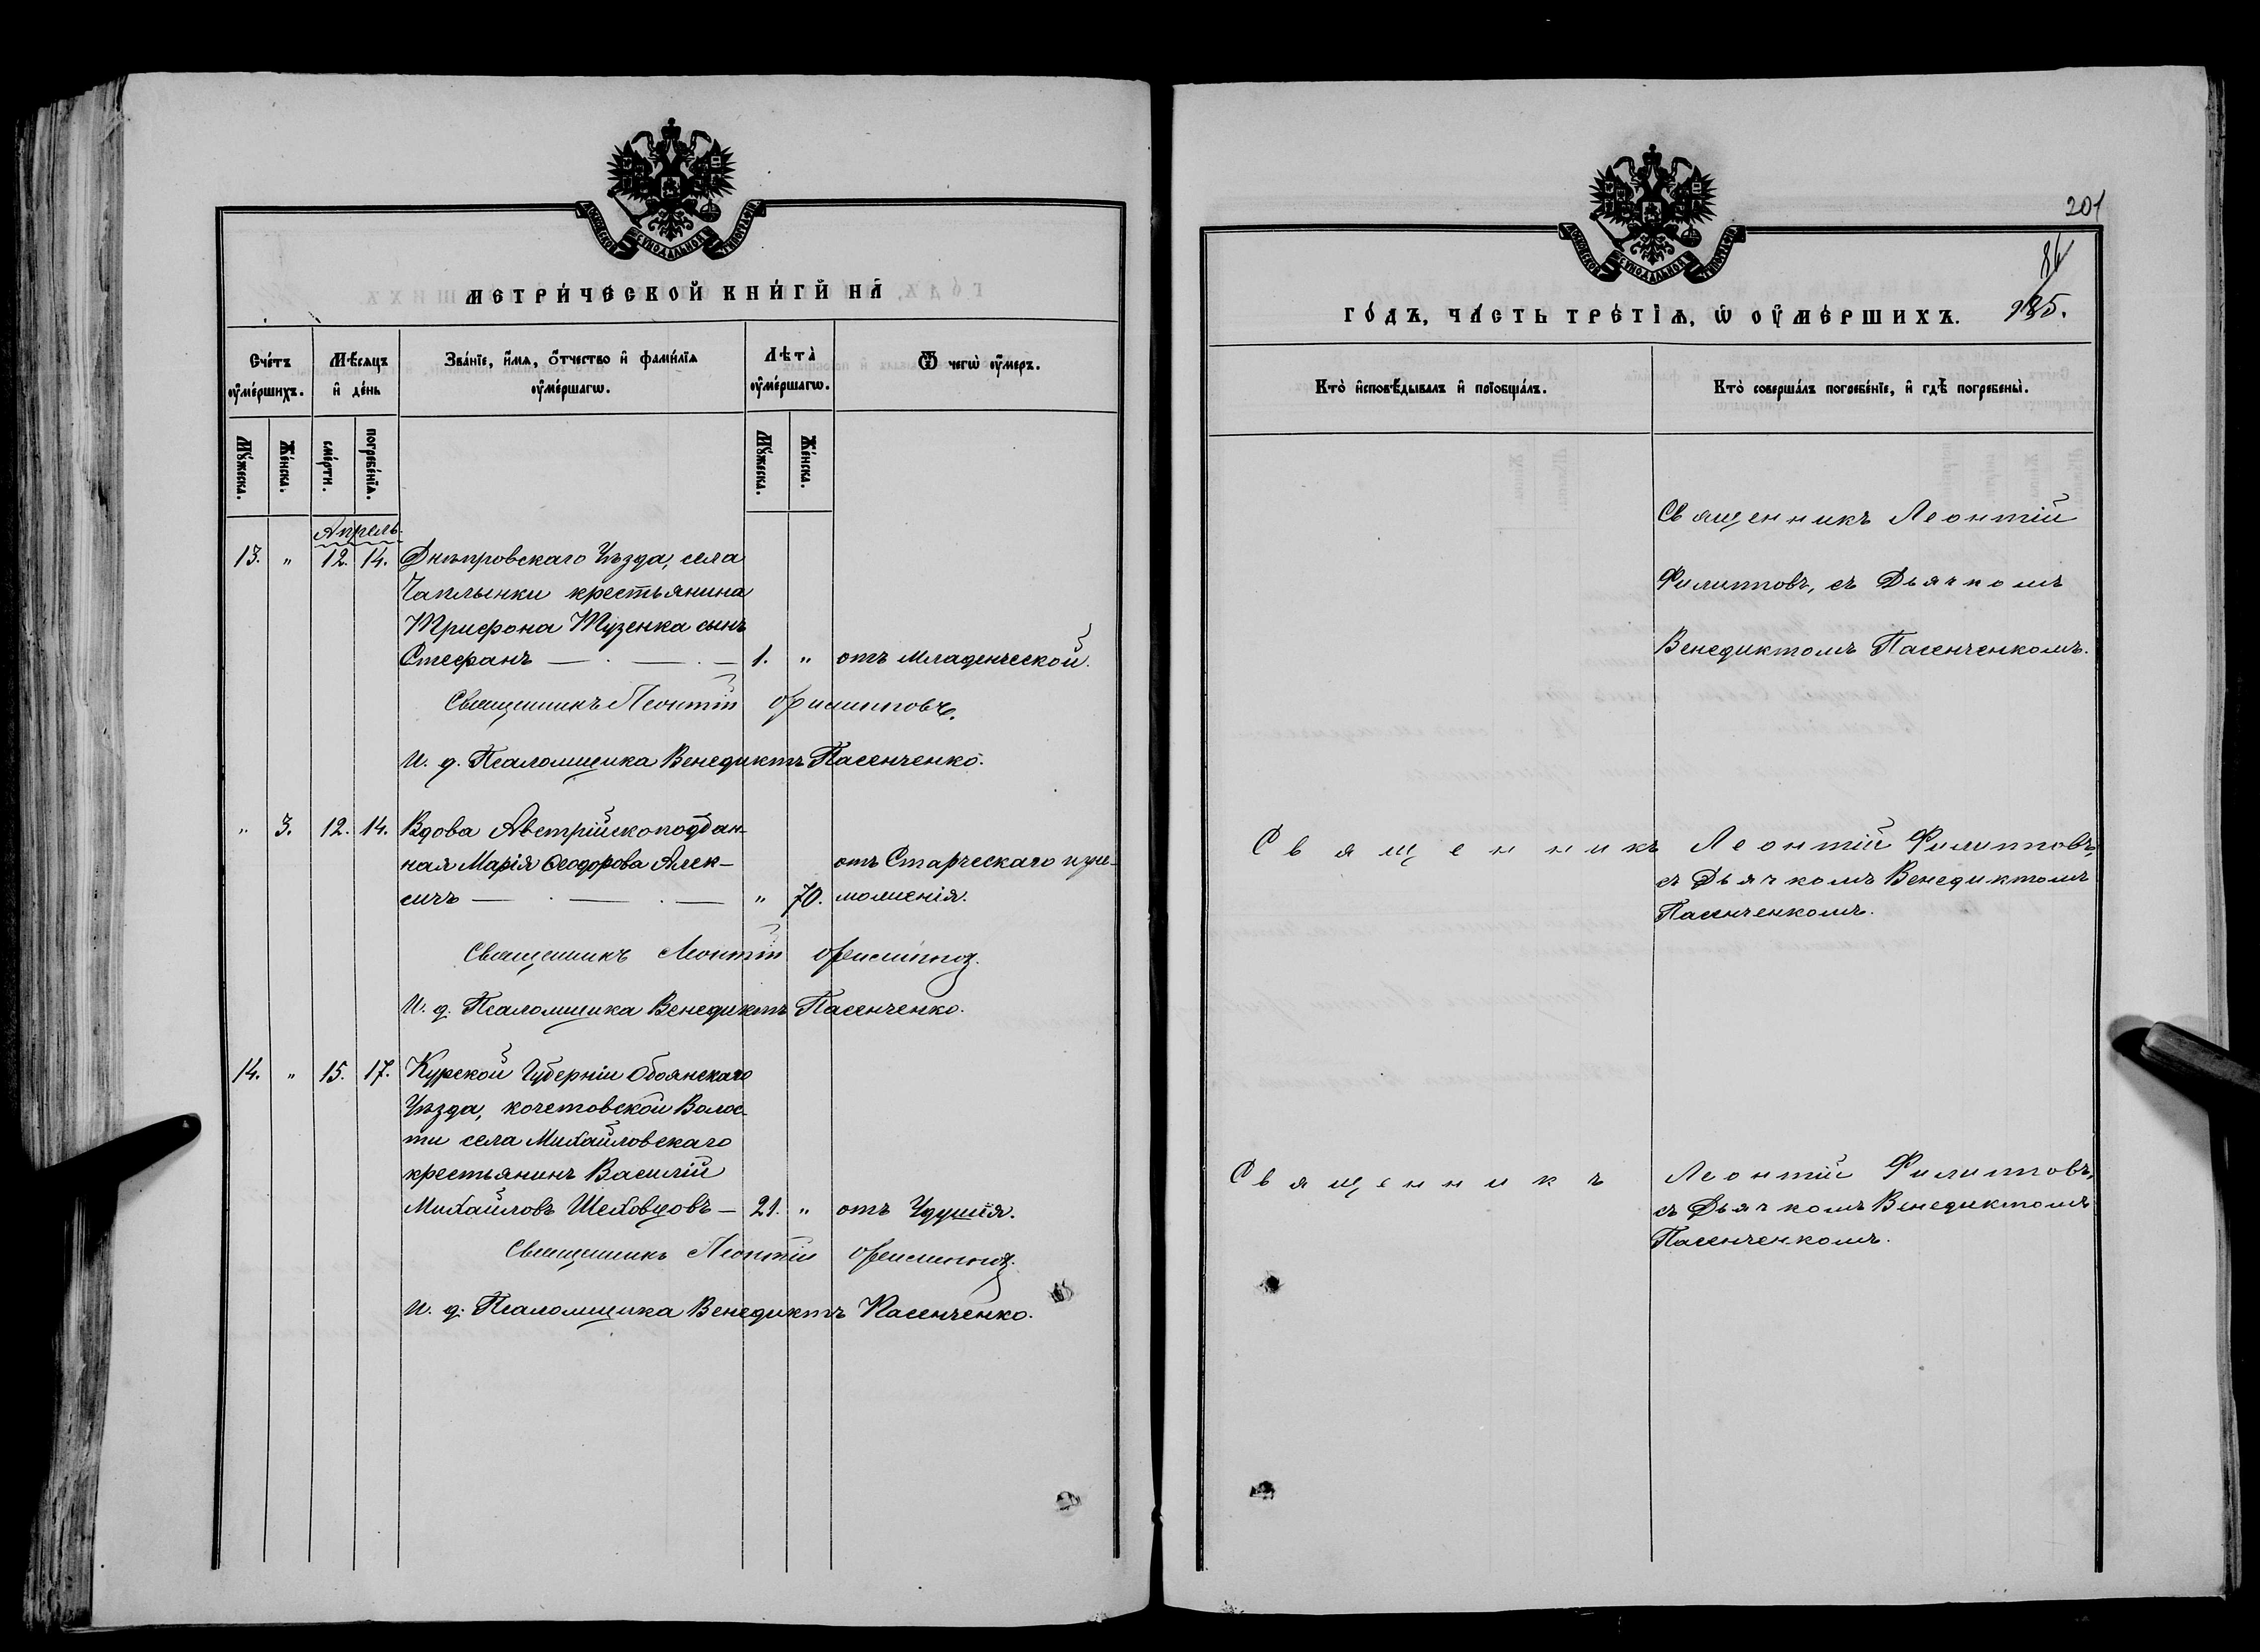 МОСКОВСКОЙ СУНОДАЛЬНОЙ ТИПОГРАФІИ
МЕТРИ́ЧЕСКОЙ КНИ́ГИ НА̀
Сче́тъ ᲂу҆ме́ршихъ.
Мѣ́сяцъ и҆ де́нь
Зва́нїе, и҆́мѧ, ѻ҆́тчество и҆ фами́лїѧ ᲂу҆ме́ршагѡ.
Лѣта̀ ᲂу҆ме́ршагѡ.
Ѿ чегѡ̀ ᲂу҆́меръ.
Мꙋ́жеска.
Же́нска.
сме́рти.
погребе́нїѧ.
Мꙋ́жеска.
Же́нска.
Апрель.
13. " 12. 14. Днѣпровскаго Уѣзда, села
Чаплынки крестьянина
Трифона Тузенка сынъ
Стефанъ — . — . — 1. " отъ младенческой.
Священникъ Леонтій Филипповъ.
И. д. Псаломщика Венедиктъ Пасенченко.
" 3. 12. 14. Вдова Австрійскоподдан-
ная Марія Ѳеодорова Алек-
сичъ — . — . — " 70. отъ Старческаго изне-
моженія.
Священникъ Леонтій Филиппов
И. д. Псаломщика Венедиктъ Пасенченко.
14. " 15. 17. Курской Губерніи Обоянскаго
Уѣзда, кочетовской Волос-
ти села Михайловскаго
крестьянинъ Василій
Михайловъ Шеховцовъ — 21. " отъ Удушія.
Священникъ Леонтій Филиппов
И. д. Псаломщика Венедиктъ Пасенченко.
201
МОСКОВСКОЙ СУНОДАЛЬНОЙ ТИПОГРАФІИ
ГО́ДЪ, ЧА́СТЬ ТРЕ́ТІѦ, Ѡ҆ ОУ҆МЕ́РШИХЪ.
185.
Кто̀ и҆сповѣ́дывалъ и҆ прїобща́лъ.
Кто̀ соверша́лъ погребе́нїе, и҆ гдѣ̀ погребены̀.
Священникъ Леонтій
Филипповъ, съ Дьячкомъ
Венедиктомъ Пасенченкомъ.
Священникъ Леонтій Филипповъ,
съ Дьячкомъ Венедиктомъ
Пасенченкомъ.
Священникъ Леонтій Филипповъ,
съ Дьячкомъ Венедиктомъ
Пасенченкомъ.